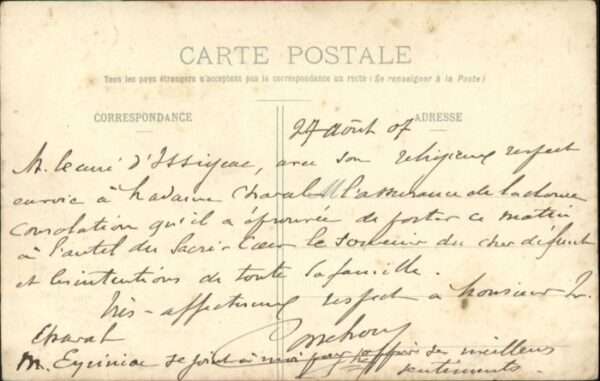 CARTE POSTALE
Tous les pays étrangers n'acceptent pas la correspondance au recto (Se renseigner à la Poste)
CORRESPONDANCE
ADRESSE
27 Août 07
M. le curé d'Issigeac, avec son religieux respect
envoie à Madame l'assurance de la douce
Consolation qu'il a éprouvée de porter ce matin
à l'autel du Sacré-Cœur le souvenir du cher défunt
et les intentions de toute la famille.
très-affectueux respect à Monsieur
M. se joint à moi pour offrir ses meilleurs
sentiments.